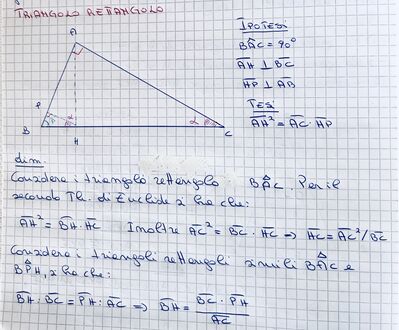 TRIANGOLO RETTANGOLO
A
P
β
α
α
B
H
C
IPOTESI
BÂC = 90°
A̅H̅ ⊥ B̅C̅
H̅P̅ ⊥ A̅B̅
TESI
A̅H̅² = A̅C̅ · H̅P̅
dim.
Considero i triangolo rettangolo BÂC. Per il
secondo Th. di Euclide si ha che:
A̅H̅² = B̅H̅ · H̅C̅ Inoltre A̅C̅² = B̅C̅ · H̅C̅ ⇒ H̅C̅ = A̅C̅²/B̅C̅
Considero i triangoli rettangoli simili BÂC e
BP̂H, si ha che:
B̅H̅ : B̅C̅ = P̅H̅ : A̅C̅ ⇒ B̅H̅ = B̅C̅ · P̅H̅ / A̅C̅